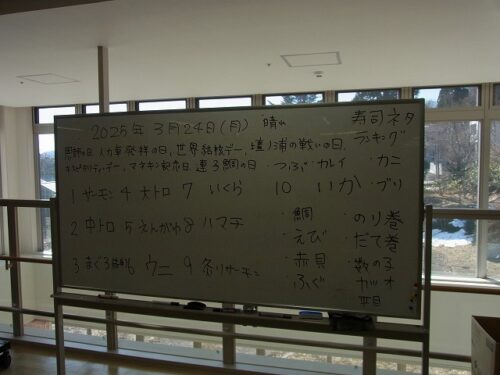 2025年 3月24日(月) 晴れ
寿司ネタ
ランキング
人力車発祥の日、世界結核デー、壇ノ浦の戦いの日、
マネキン記念日、連子鯛の日
・つぶ・カレイ ・カニ
1 サーモン 4 大トロ 7 いくら 10 いか ・ブリ
2 中トロ 5 えんがわ 8 ハマチ
・鯛 ・のり巻
・えび ・だて巻
3 まぐろ 6 ウニ 9 炙りサーモン
・赤貝 ・数の子
・ふぐ ・カツオ